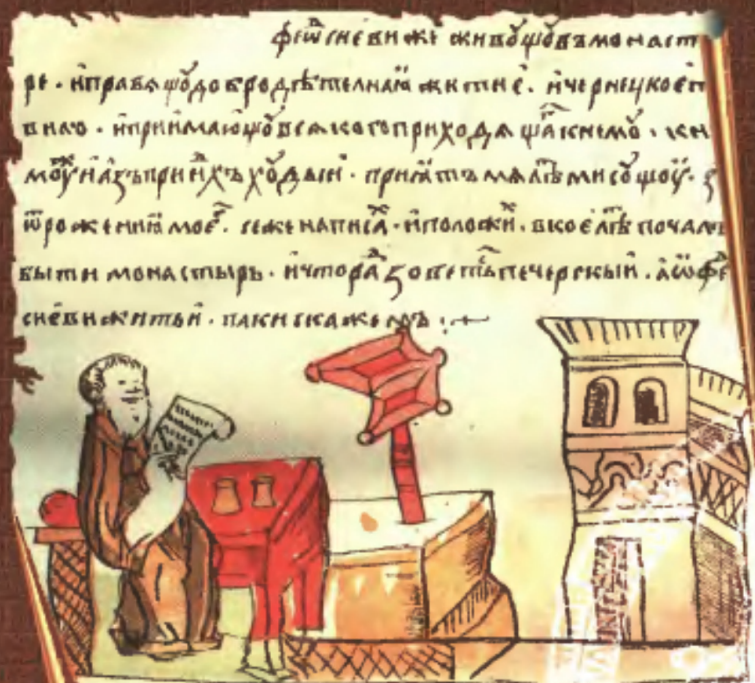 феѿсиеви же живоущоу въ монаст
ре · и правѧщоу добродѣтелнаꙗ житиє · и чернецкоє п
вило · и приимающоу всѧкого приходѧщаг к немоу · к н
моуж и азъ приидхъ хоудыи · приꙗтъ мѧ лѣт ми соущоу ·
ѿ рожениꙗ моег · се же написах · и положих · в коє лѣт почалъ
быти монастырь · и что рад зоветьс печерскыи · а ѡ фе
сиєви житьи · паки скажемъ :·